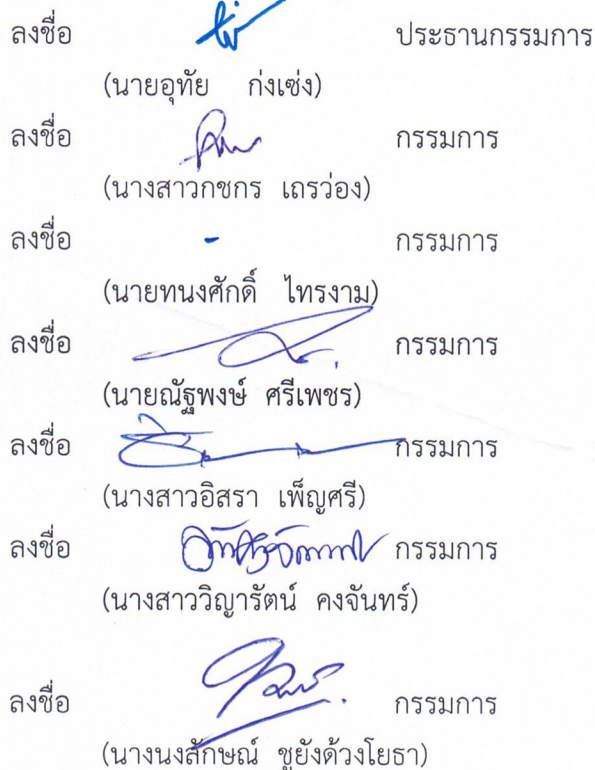 ลงชื่อ ประธานกรรมการ
(นายอุทัย ก่งเซ่ง)
ลงชื่อ กรรมการ
(นางสาวกชกร เถรว่อง)
ลงชื่อ - กรรมการ
(นายทนงศักดิ์ ไทรงาม)
ลงชื่อ กรรมการ
(นายณัฐพงษ์ ศรีเพชร)
ลงชื่อ กรรมการ
(นางสาวอิสรา เพ็ญศรี)
ลงชื่อ กรรมการ
(นางสาววิญารัตน์ คงจันทร์)
ลงชื่อ กรรมการ
(นางนงลักษณ์ ชูยังด้วงโยธา)